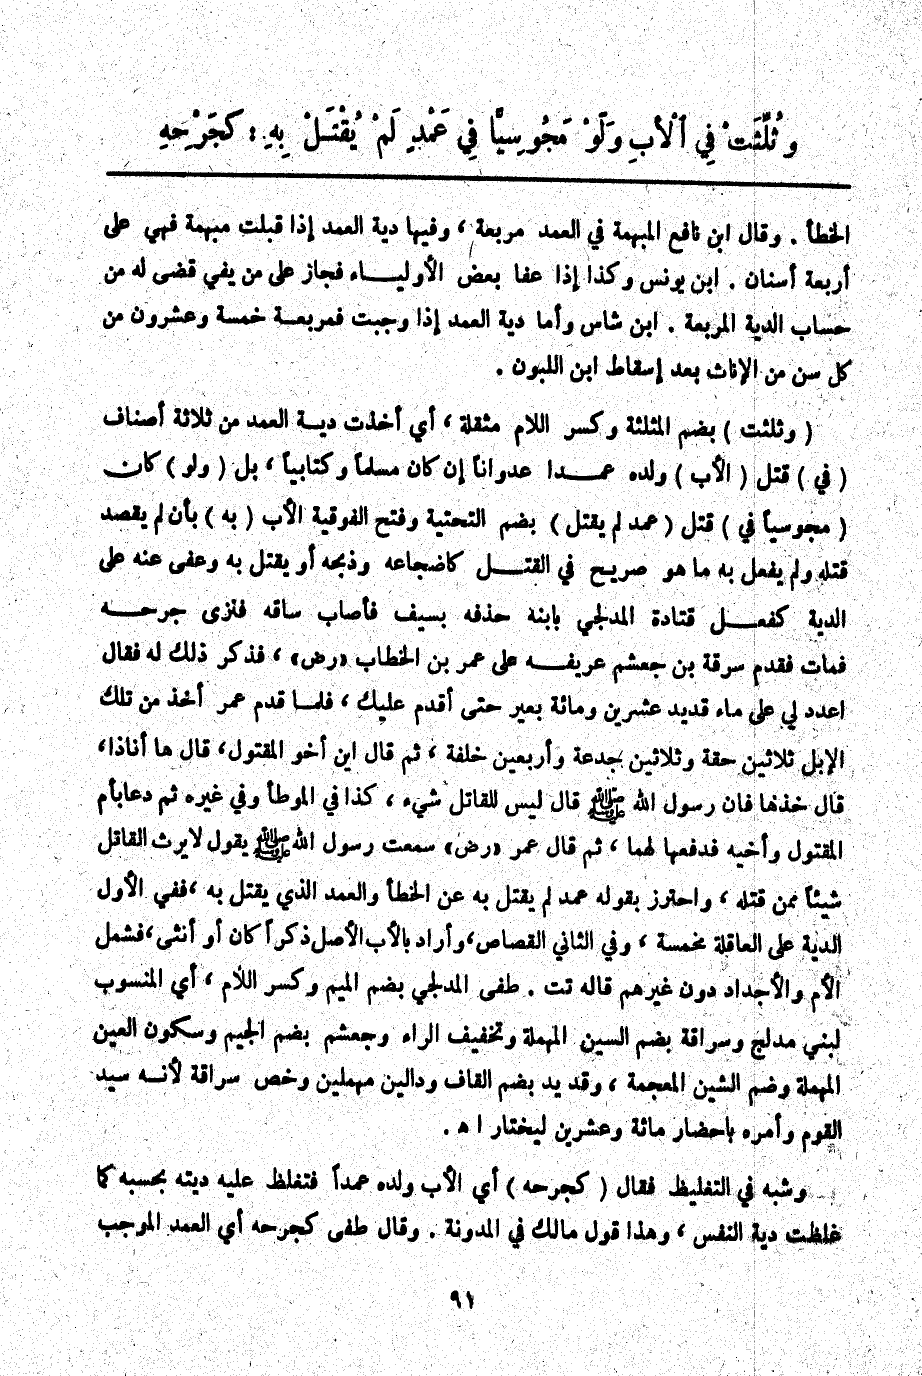 وَثُلِّثَتْ فِي ٱلْأَبِ وَلَوْ مَجُوسِيًّا فِي عَمْدٍ لَمْ يُقْتَلْ بِهِ : كَجَرْحِهِ
الخطأ . وقال ابن نافع المبهمة في العمد مربعة ، وفيها دية العمد إذا قبلت مبهمة فهي على
أربعة أسنان . ابن يونس وكذا إذا عفا بعض الأوليـــاء فجاز على من يفي قضى له من
حساب الدية المربعة . ابن شاس وأما دية العمد إذا وجبت فمربعـة خمسة وعشرون من
كل سن من الإناث بعد إسقاط ابن اللبون .
( وثلثت ) بضم المثلثة وكسر اللام مثقلة ، أي أخذت ديـة العمد من ثلاثة أصناف
( في ) قتل ( الأب ) ولده عمـــدا عدواناً إن كان مسلماً وكتابياً ، بل ( ولو ) كان
( مجوسياً في ) قتل ( عمد لم يقتل ) بضم التحتية وفتح الفوقية الأب ( به ) بأن لم يقصد
قتله ولم يفعل به ما هو صريح في القتـــل كاضجاعه وذبحه أو يقتل به وعفى عنه على
الدية كفعـــل قتادة المدلجي بابنه حذفه بسيف فأصاب ساقه فنزى جرحـــه
فمات فقدم سرقة بن جعشم عريفـــه على عمر بن الخطاب «رض» ، فذكر ذلك له فقال
اعدد لي على ماء قديد عشرين ومائة بعير حتى أقدم عليك ، فلمـا قدم عمر أخذ من تلك
الإبل ثلاثين حقة وثلاثين جدعة وأربعين خلفة ، ثم قال ابن أخو المقتول، قال ها أناذا،
قال خذها فان رسول الله ﷺ قال ليس للقاتل شيء ، كذا في الموطأ وفي غيره ثم دعا بأم
المقتول وأخيه فدفعها لهما ، ثم قال عمر «رض» سمعت رسول الله ﷺ يقول لا يرث القاتل
شيئاً ممن قتله ، واحترز بقوله عمد لم يقتل به عن الخطأ والعمد الذي يقتل به ،ففي الأول
الدية على العاقلة مخمسة ، وفي الثاني القصاص،وأراد بالأب الأصل ذكراً كان أو أنثى،فشمل
الأم والأجداد دون غيرهم قاله تت . طفى المدلجي بضم الميم وكسر اللام ، أي المنسوب
لبني مدلج وسراقة بضم السين المهملة وتخفيف الراء وجعشم بضم الجيم وسكون العين
المهملة وضم الشين المعجمة ، وقديد بضم القاف ودالين مهملين وخص سراقة لأنـه سيد
القوم وأمره باحضار مائة وعشرين ليختار ا ه .
وشبه في التغليظ فقال ( كجرحه ) أي الأب ولده عمداً فتغلظ عليه ديته بحسبه كما
غلظت دية النفس ، وهذا قول مالك في المدونة . وقال طفى كجرحه أي العمد الموجب
٩١